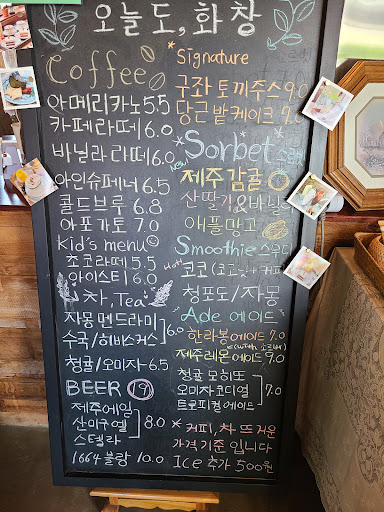 오늘도, 화창
Coffee
아메리카노 5.5
카페라떼 6.0
바닐라 라떼 6.0
아인슈페너 6.5
콜드브루 6.8
아포가토 7.0
Kid's menu
초코라떼 5.5
아이스티 6.0
차, Tea
자몽 멘드라미
수국/히비스커스 6.0
청귤/오미자 6.5
BEER 19
제주에일
산미구엘 8.0
스텔라
1664 블랑 10.0
* Signature
구좌 토끼주스 9.0
당근 밭 케이크 9.0
*Sorbet
NEW 제주 감귤
산딸기&바닐
애플망고
Smoothie 스무디
Hot 코코(코코넛+커피
청포도/자몽
Ade 에이드
한라봉에이드 7.0
(with 소르베)
제주레몬에이드 9.0
청귤 모히또
오미자코디얼 7.0
트로피컬에이드
* 커피, 차 뜨거운
가격 기준 입니다
Ice 추가 500원